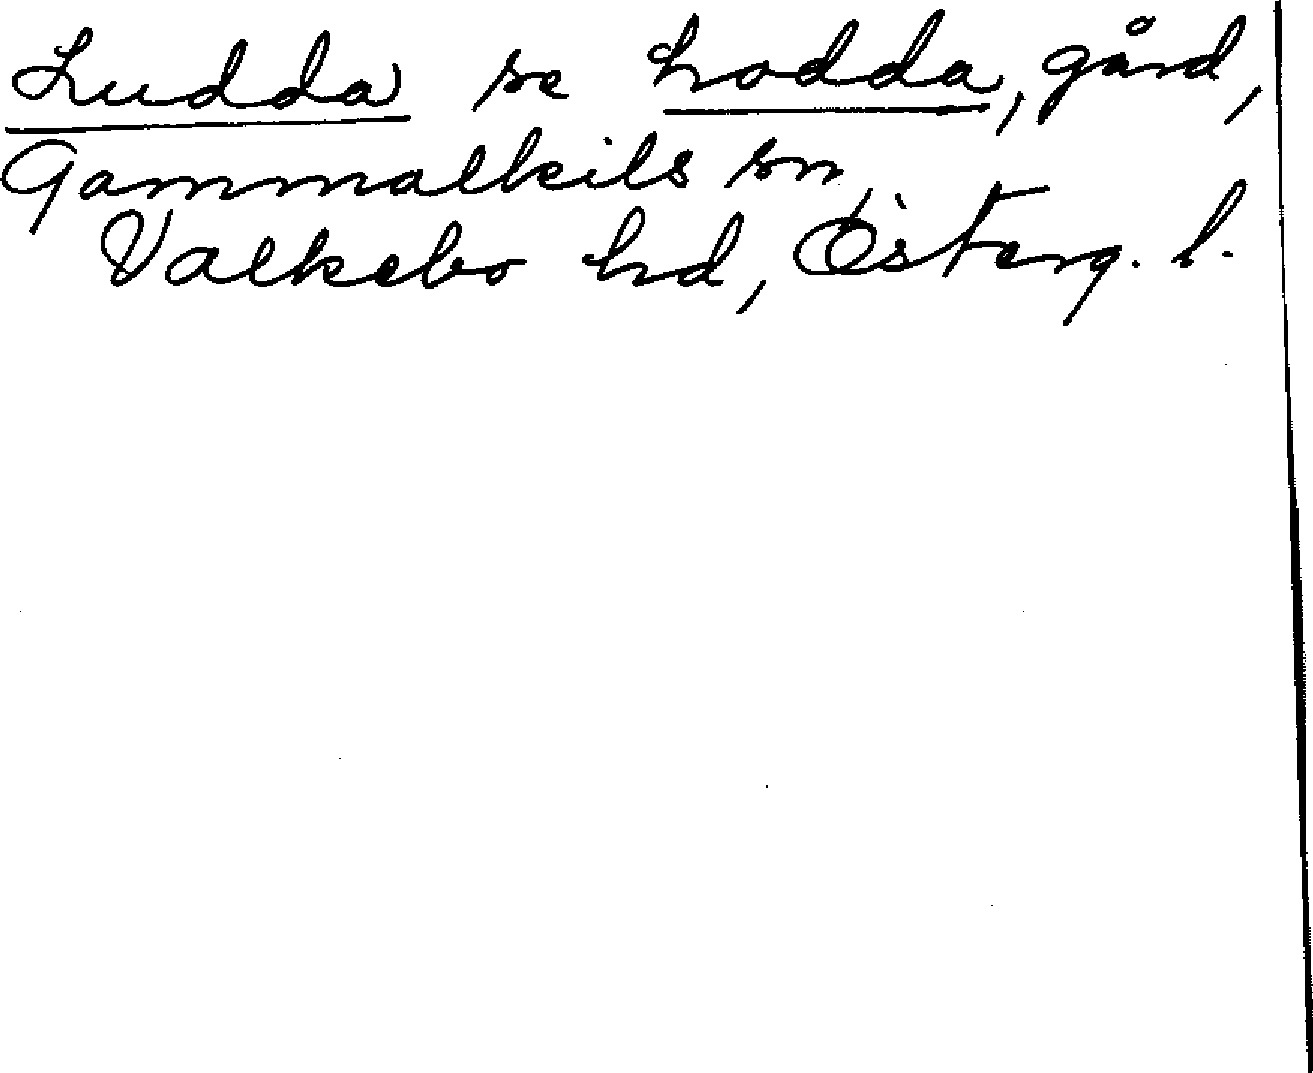 Ludda se Lodda, gård,
Gammalkils sn,
Valkebo hd, Österg. l.